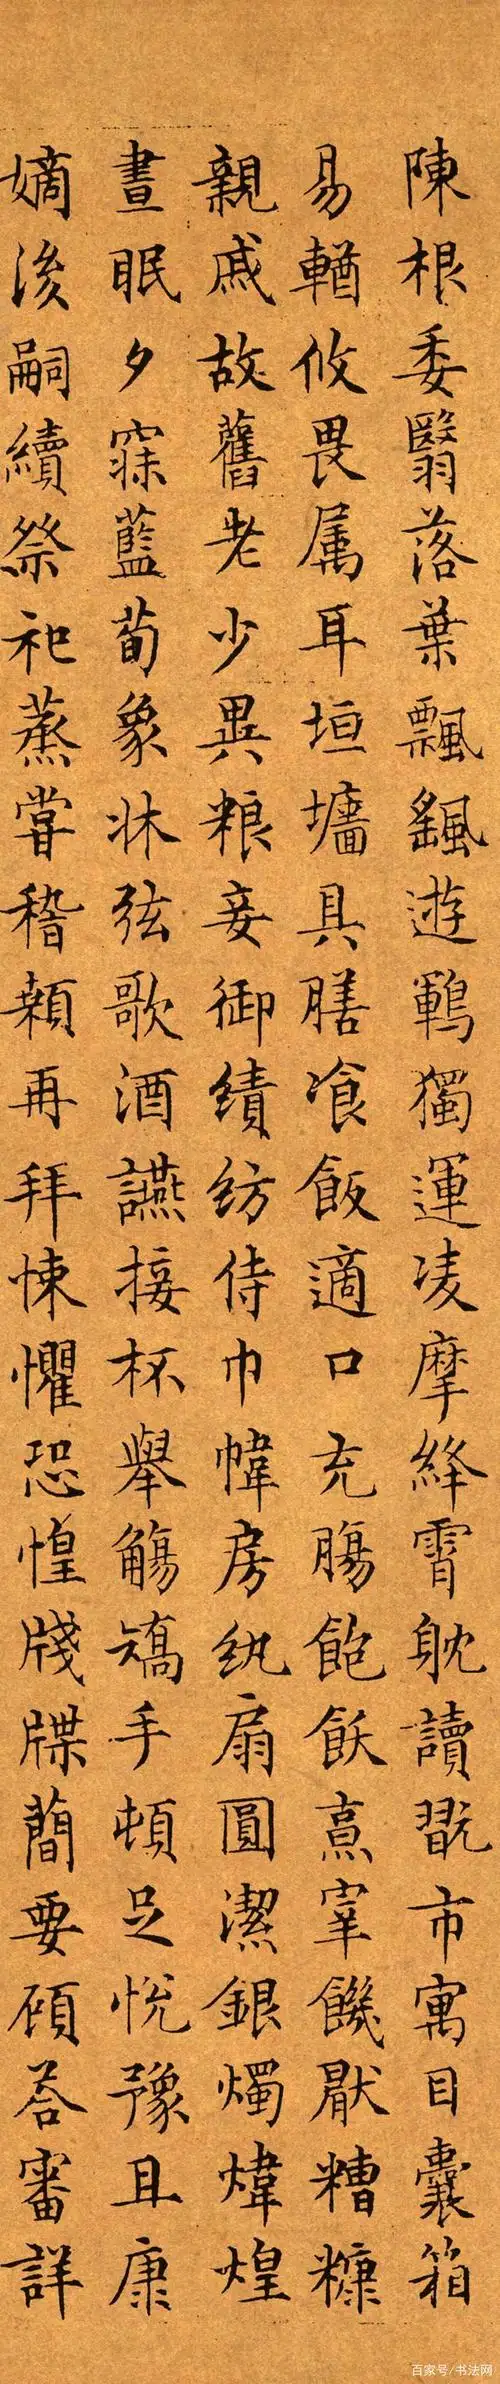 陳根委翳落葉飄颻遊鵾獨運凌摩絳霄耽讀翫市寓目囊箱
易輶攸畏属耳垣墻具膳飡飯適口充腸飽飫烹宰饑厭糟糠
親戚故舊老少異粮妾御績紡侍巾帷房紈扇圓潔銀燭煒煌
晝眠夕寐藍荀象牀弦歌酒讌接杯舉觴矯手頓足悅豫且康
嫡後嗣續祭祀蒸嘗稽顙再拜悚懼恐惶牋牒蕳要顧荅審詳
百家号/书法网